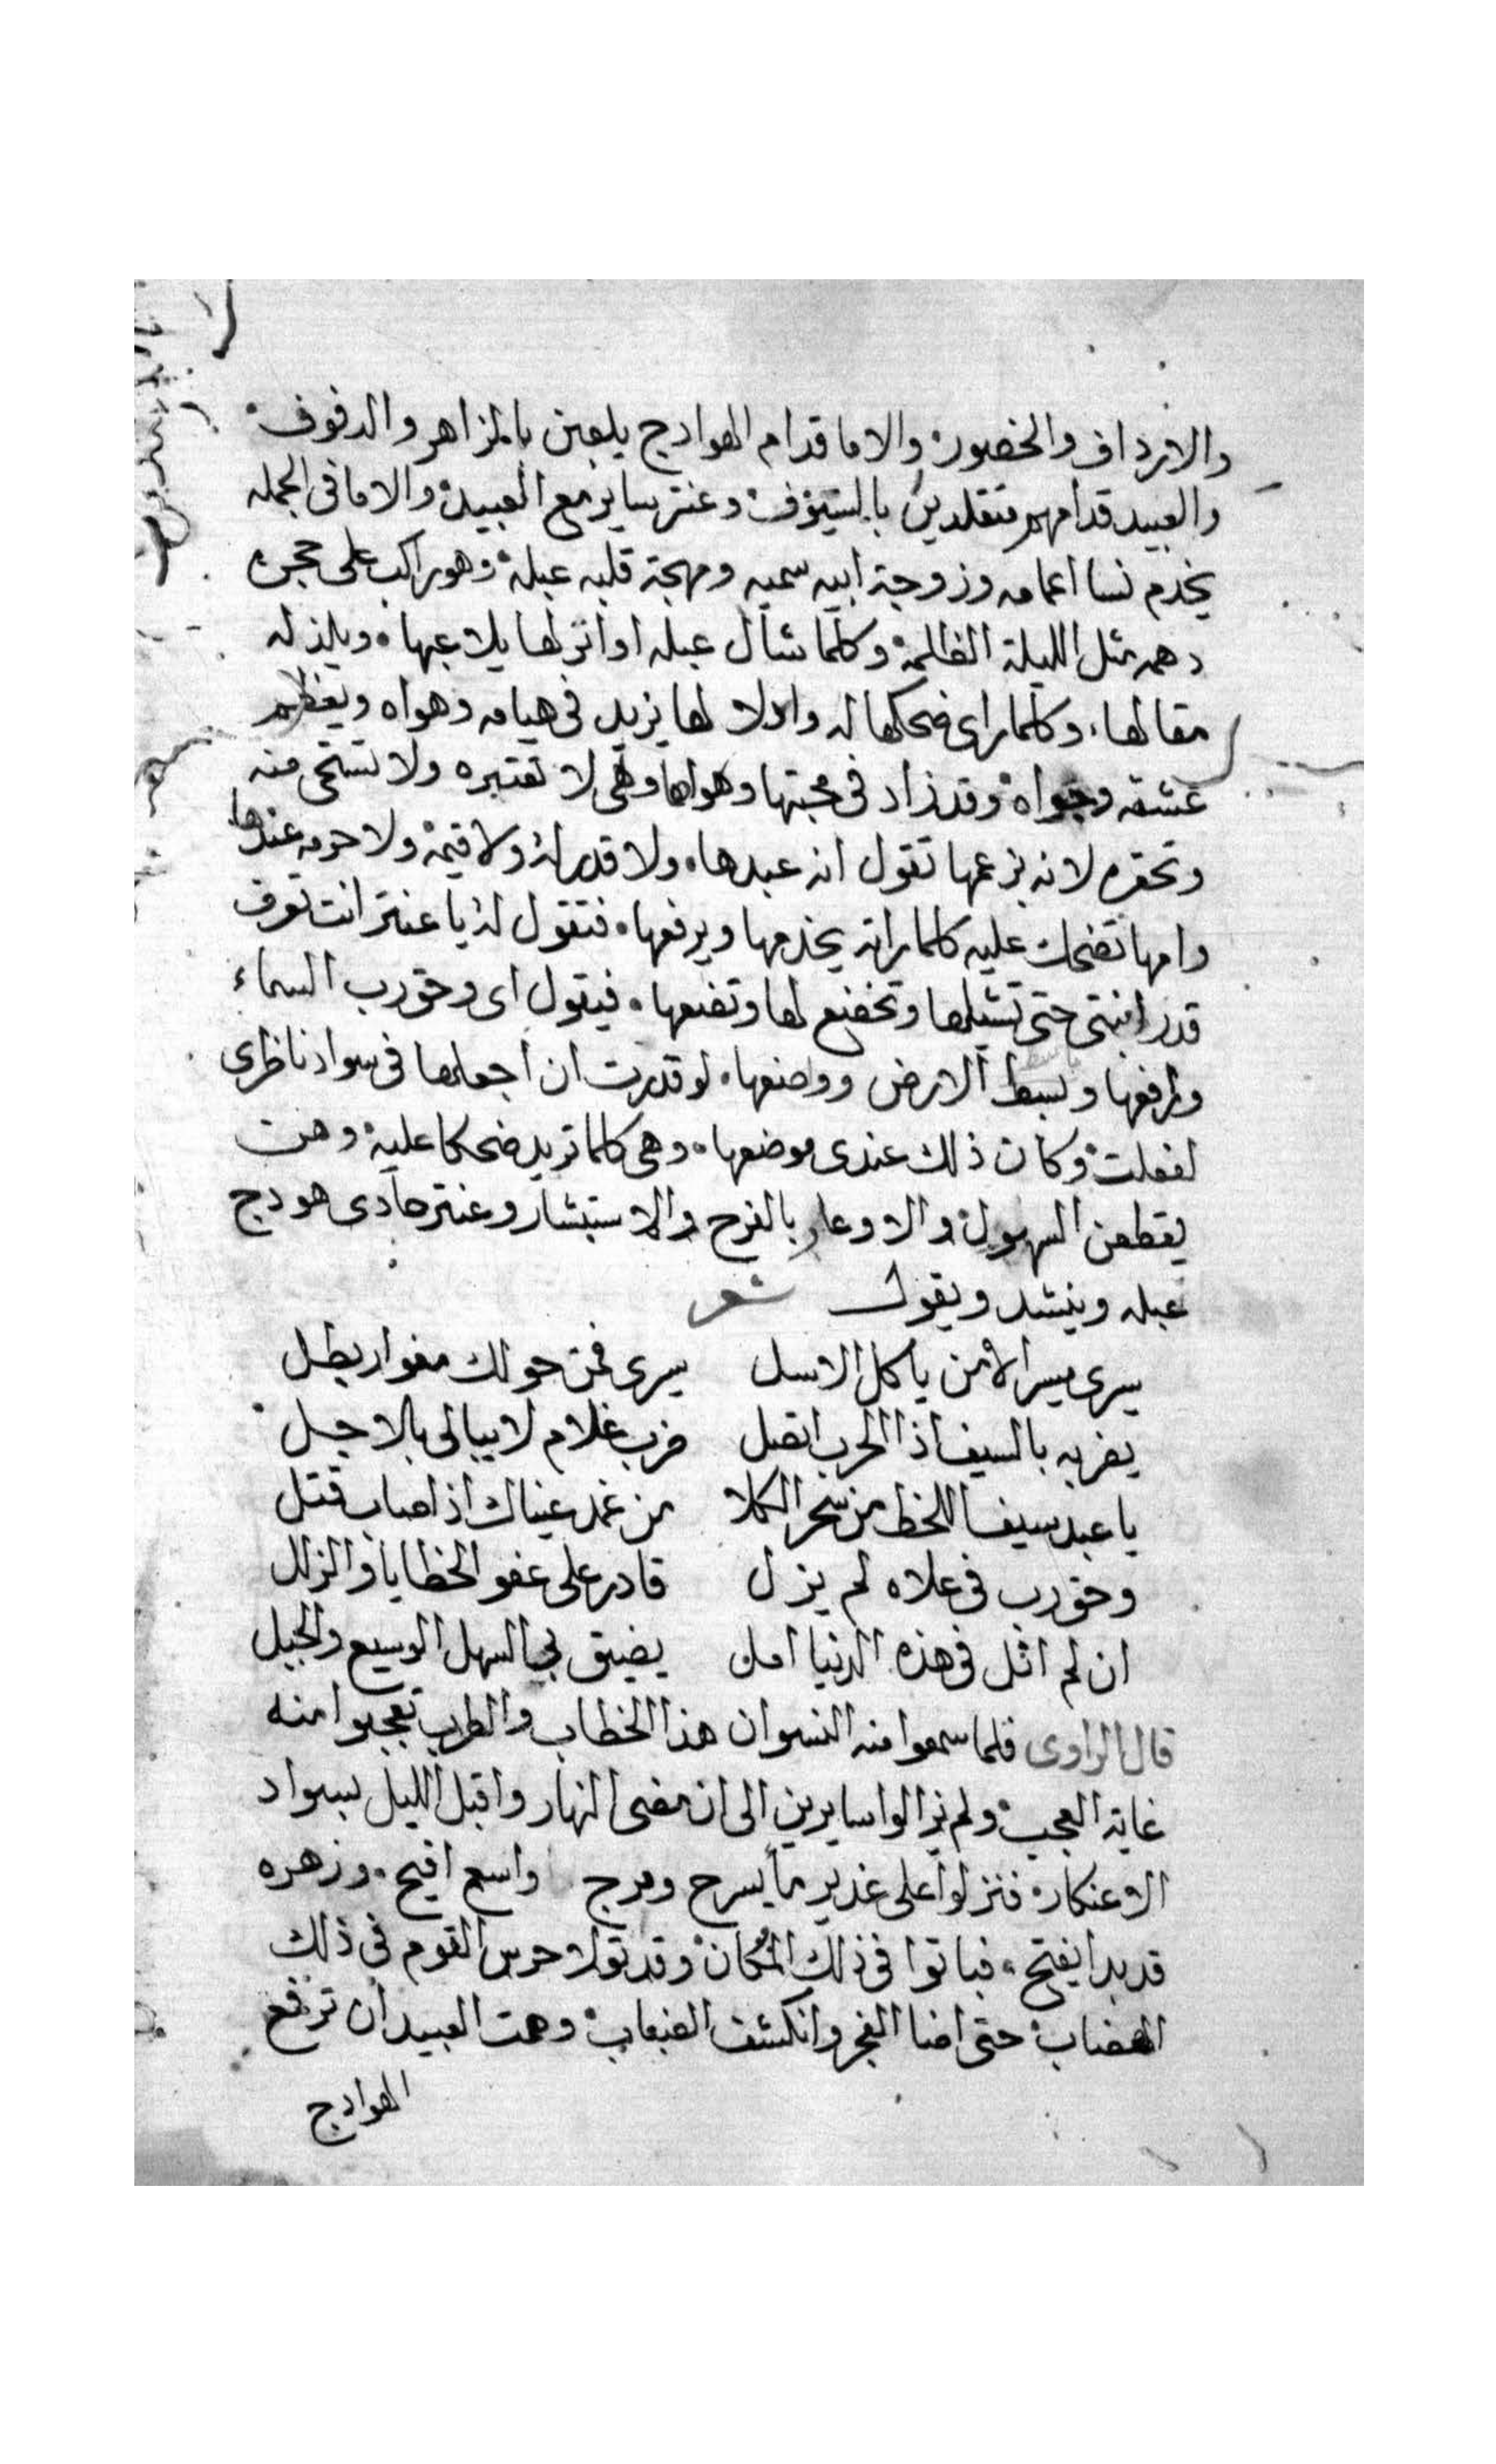 والارداف والخصور والاما قدام الهوادج يلعبن بالمزاهر والدفوف
والعبيد قدامهم متقلدين بالسيوف وعنتر ساير مع العبيد والاما فى الجمله
يخدم نسا اعمامه وزوجة ابيه سميه ومهجة قلبه عبلة وهو راكب على حجره
دهمه مثل الليلة الظلمة وكلما شال عبله او انزلها يلاعبها ويلذ له
مقالها وكلما راى ضحكها له وادلالها يزيد فى هيامه وهواه ويعظم
عشقه وجواه وقد زاد فى محبتها وهواها وهى لا تعتبره ولا تستحى منه
وتحقره لانه بزعمها تقول انه عبدها ولا قدر له ولا قيمة ولا حرمه عندها
وامها تضحك عليه كلما راته يخدمها ويرفعها فتقول له يا عنتر انت تعرف
قدر ابنتى حتى تشيلها وتخضع لها وتضعها فيقول اى وحق رب السماء
ورافعها وباسط الارض وواضعها لو قدرت ان اجعلها فى سواد ناظرى
لفعلت وكان ذلك عندى موضعها وهى كلما تزيد ضحكا عليه وهن
يقطعن السهول والاوعار بالفرح والاستبشار وعنتر حادى هودج
عبله وينشد ويقول شعر
سيرى مسير الامن يا كل الاسل سيرى فمن حولك مغوار بطل
يضربه بالسيف اذا الحرب اتصل ضرب غلام لا يبالى بالاجل
يا عبل سيف اللحظ من سحر الكلا من غمد عيناك اذا صاب قتل
وحق رب فى علاه لم يزل قادر على عفو الخطايا والزلل
ان لم انل فى هذه الدنيا امل يضيق بى السهل الوسيع والجبل
قال الراوى فلما سمعوا منه النسوان هذا الخطاب والطرب تعجبوا منه
غاية العجب ولم يزالوا سايرين الى ان مضى النهار واقبل الليل بسواد
الاعتكار فنزلوا على غدير ما يسرح ومرج واسع افيح وزهره
قد بدا يفتح فباتوا فى ذلك المكان وقد تولا حرس القوم فى ذلك
الهضاب حتى اضا الفجر وانكشف الضباب وهمت العبيد ان ترفع
الهوادج